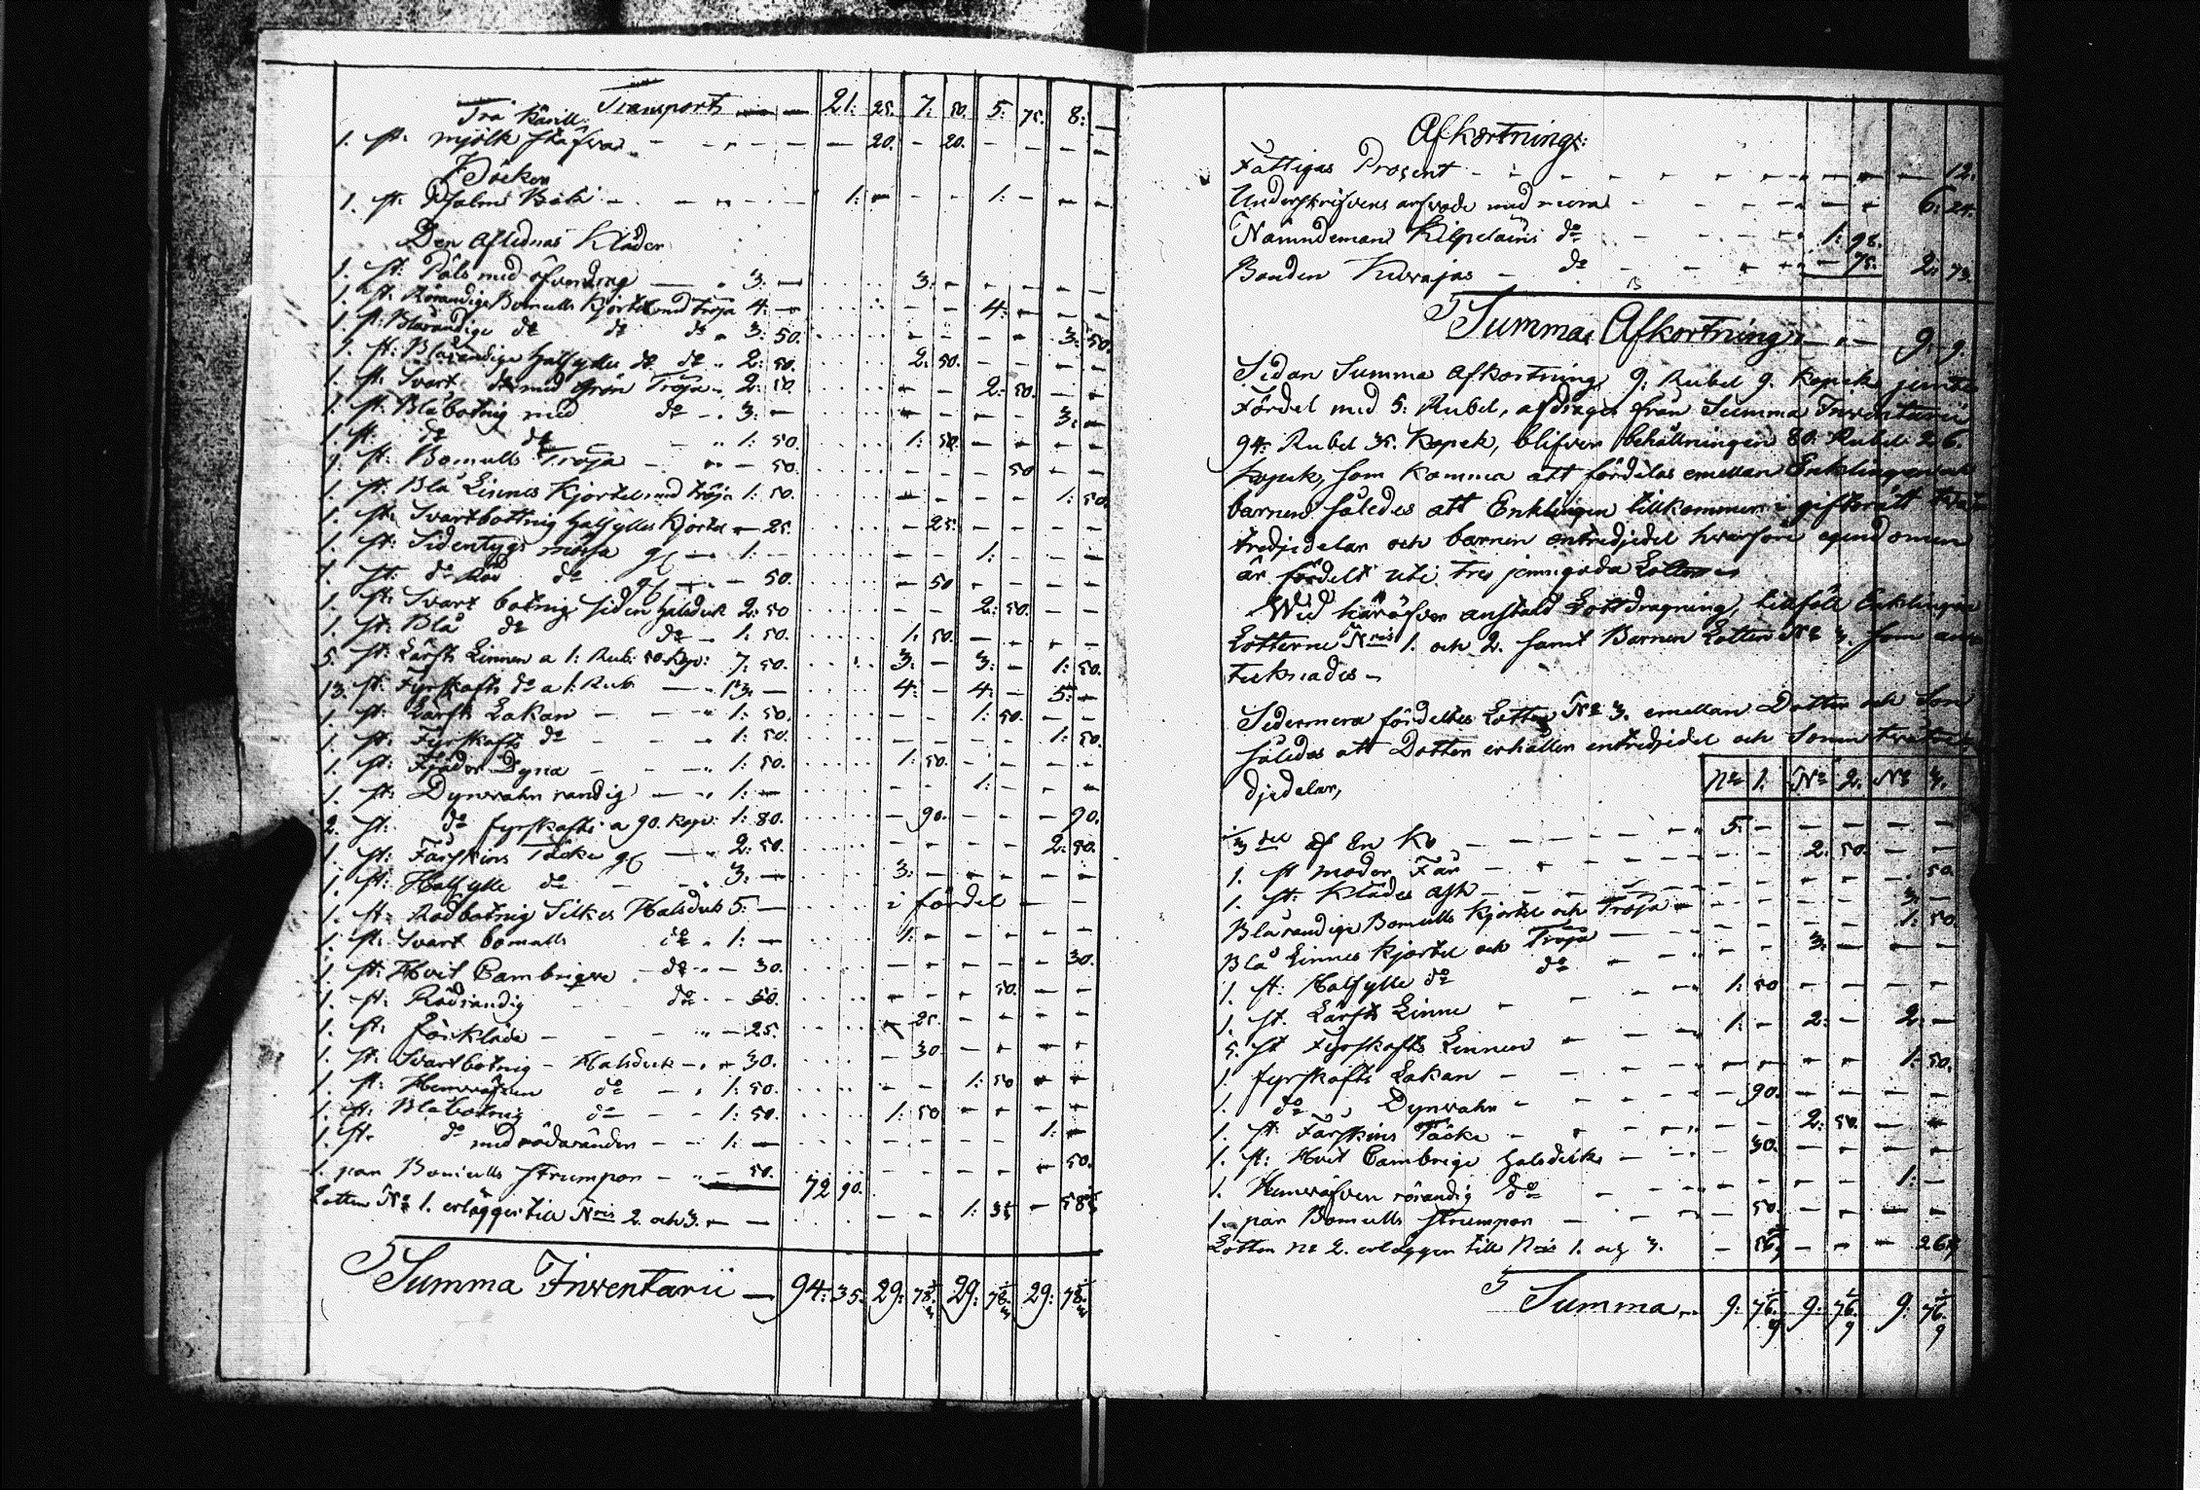 Transport — — 21: 25. 7: 50. 5: 75. 8: —
Trä Käril
1. st: mjölk stäfva — — — — — 20. — 20. — — — —
Böcker
1. st. Psalm Bok — — — 1: — — — 1: — — —
Den Aflidnas Kläder
1. st: Päls med öfverdrag — 3: — 3: — — — — —
1. st. Rörandige Bomulls Kjortel med tröja 4: — — — 4: — — —
1. st: Blårandige do do do 3: 50. — — — — 3: 50.
1. st: Blårandige Halfylle do do 2: 50. 2: 50. — — — —
1. st. Svart do med Grön Tröja 2: 50. — — 2: 50. — —
1. st: Blåbotnig med do 3: — — — — — 3: —
1. st: do do — 1: 50. 1: 50. — — — —
1. st: Bomulls Tröja — — 50. — — — 50 — —
1. st: Blå Linnes Kjortel med tröja 1: 50. — — — — 1: 50.
1. st: Svartbottnig Halfylles Kjortel — 25. — 25. — — — —
1. st: Sidentygs mössa gl — 1: — — — 1: — — —
1. st: do Röd do gl — — 50. — 50 — — — —
1. st: Svart botnig siden Halsduk 2: 50 — — 2: 50. — —
1. st: Blå do do — 1: 50. 1: 50. — — — —
5. st: Lärfts Linnen a 1: Rub: 50 kop: 7: 50. 3: — 3: — 1: 50.
13. st: Fyrskafts do a 1: Rub — 13: — 4: — 4: — 5: —
1. st: Lärfts Lakan — — 1: 50. — — 1: 50. — —
1. st: Fyrskafts do — — 1: 50. — — — — 1: 50.
1. st: Fjäder Dyna — — 1: 50. 1: 50. — — — —
1. st: Dynvahr randig — — 1: — — — 1: — — —
2. st: do fyrskafts a 90. kop: 1: 80. — 90. — — — 90.
1. st: Fårskins Täcke gl — 2: 50. — — — — 2: 50.
1. st: Halfylle do — — 3: — 3: — — — — —
1. st: Rödbotnig Silkes Halsduk 5: — i fördel — —
1. st: Svart bomulls do 1: — 1: — — — — —
1. st: Hvit Cambrigse do — 30. — — — — — 30.
1. st: Rödrandig do — 50. — — — 50. — —
1. st: förkläde — — — 25. — 25. — — — —
1. st: Svartbotnig — Halsduk — — 30. — 30. — — — —
1. st: Hemväfven do — 1: 50. — — 1: 50 — —
1. st: Blåbotnig do — 1: 50. 1: 50 — — — —
1. st. do med röda ränder — 1: — — — — — 1: —
1. par Bomulls strumpor — — 50. 72 90. — — — — — 50.
Lotten No 1. erlägger till Nris 2. och 3. — — — — 1: 35 — 58
Summa Inventarii — 94: 35. 29: 78 29: 78 29: 78
Afkortning:
Fattigas Prosent — — — — — — — 12.
Underskrifvens arfvode med mera — — — — 6: 24.
Nämndeman Kilpeläins do — — — 1: 98.
Bonden Kurvajas — do — — — 75. 2: 73.
Summa Afkortning — — 9: 9.
Sedan Summa Afkortning 9: Rubel 9. Kopek jemte
Fördel med 5: Rubel, afdrages från Summa Inventarii
94: Rubel 35. Kopek, blifver behållningen 80. Rubel 26.
Kopek, som komma att fördelas emellan Enklingen och
barnen således att Enklingen tillkommer i giftorätt Två
tredjedelar och barnen entredjedel hvarföre egendomen
är fördelt uti tre jemngoda Lotter
Wid häröfver anstald Lottdragning, tillföll Enklingen
Lotterne Nris 1. och 2. samt Barnen Lotten No 3. som an
teknades —
Sedermera fördeltes Lotten No 3. emellan Dotter och Son
således att Dottern erhåller entredjedel och Sonen två tre
djedelar,
No 1. No 2. No 3.
1/3 del af En Ko — — — 5: — — — — —
1. st moder Får — — — — — 2: 50. — —
1. st: Klädes — — — — — — — 50.
Blårandige Bomulls Kjortel och Tröja — — — — — 3: —
Blå Linnes Kjortel och Tröja — — — — — — 1: 50
1. st: Halfylle do do — — — — 3: — — —
1. st. Lärfts Linne — — — 1: 50 — — — —
5. st Fyrskafts Linnen — — 1: — 2: — 2: —
1. fyrskafts Lakan — — — — — — — 1: 50.
1. do Dynvahr — — — — 90. — — — —
1. st: Fårskins Täcke — — — — — 2: 50. — —
1. st: Hvit Cambrige Halsduk — — — 30. — — — —
1. Hemväfven rörandig do — — — — — — 1: —
1. par Bomulls strumpor — — — 50. — — — —
Lotten No 2. erlägger till Nris 1. och 3. — 56 — — — 26
Summa — 9: 76 9: 76 9: 76